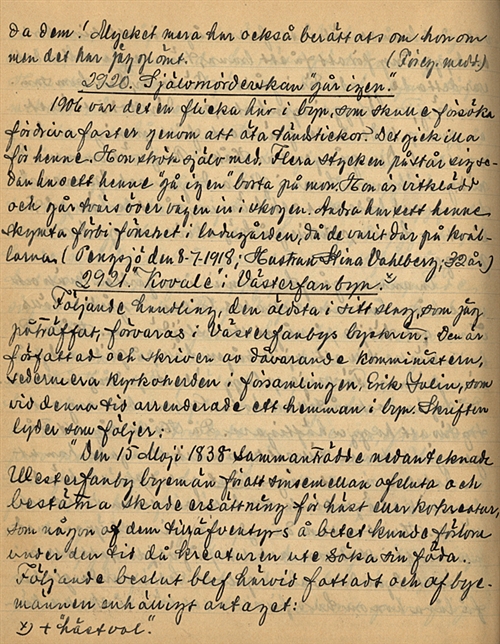 da dem! Mycket mera har också berättats om honom
men det har jag glömt. (Föreg. medd.)
2920. Självmörderskan "går igen."
1906 var det en flicka här i byn, som skulle försöka
fördriva foster genom att äta tändstickor. Det gick illa
för henne. Hon strök själv med. Flera stycken påstår sig se-
dan ha sett henne "gå igen" borta på mon. Hon är vitklädd
och går tvärs över vägen in i skogen. Andra har sett henne
skymta förbi fönstret i ladugården, då de varit där på kväl-
larna. (Pengsjö den 8-7-1918; Hustrun Stina Vahlberg, 32 år.)
2921. "Kovale" i Västerfanbyn. x)
Följande handling, den äldsta i sitt slag, som jag
påträffat, förvaras i Västerfanbys byskrin. Den är
författad och skriven av dåvarande komministern,
sedermera kyrkoherden i församlingen, Erik Julin, som
vid denna tid arrenderade ett hemman i byn. Skriften
lyder som följer:
"Den 15 Maji 1838 sammanträdde nedanteknade
Westerfanby byemän för att sinsemellan afsluta och
bestämma skadeersättning för häst eller kokreatur,
som någon af dem till äfventyrs å betet kunde förlora
under den tid då kreaturen ute söka sin föda.
Följande beslut blef härvid fattadt och af bye-
männen enhälligt antaget:
x) + "hästval".